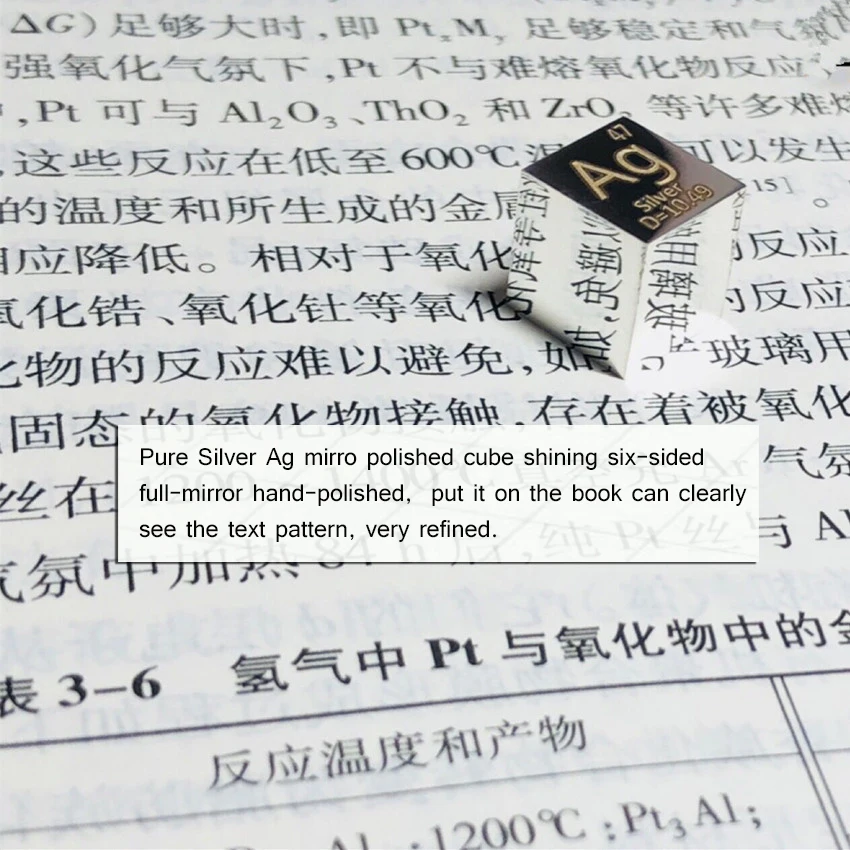 ΔG)足够大时,即 PtxMy 足够稳定和气氛
强氧化气氛下,Pt 不与难熔氧化物反应
,Pt 可与 Al₂O₃、ThO₂ 和 ZrO₂ 等许多难熔
,这些反应在低至600℃ 可以发生
的温度和所生成的金属 15]。
应降低。相对于氧化 反应
氧化锆、氧化钍等氧化 反应
物的反应难以避免,如 玻璃用
固态的氧化物接触,存在着被氧化
丝在 1200~1400℃ 气氛
气氛中加热 84 h 后,纯 Pt 丝与 Al
表 3-6 氢气中 Pt 与氧化物中的金
反应温度和产物
Al ;1200℃;Pt₃Al;
47
Ag
Silver
D=10.49
Pure Silver Ag mirro polished cube shining six-sided
full-mirror hand-polished, put it on the book can clearly
see the text pattern, very refined.